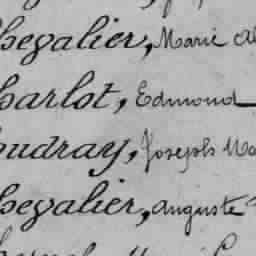 hevalier, Marie Al
harlot, Edmond
oudray, Joseph Ma
hevalier, Auguste